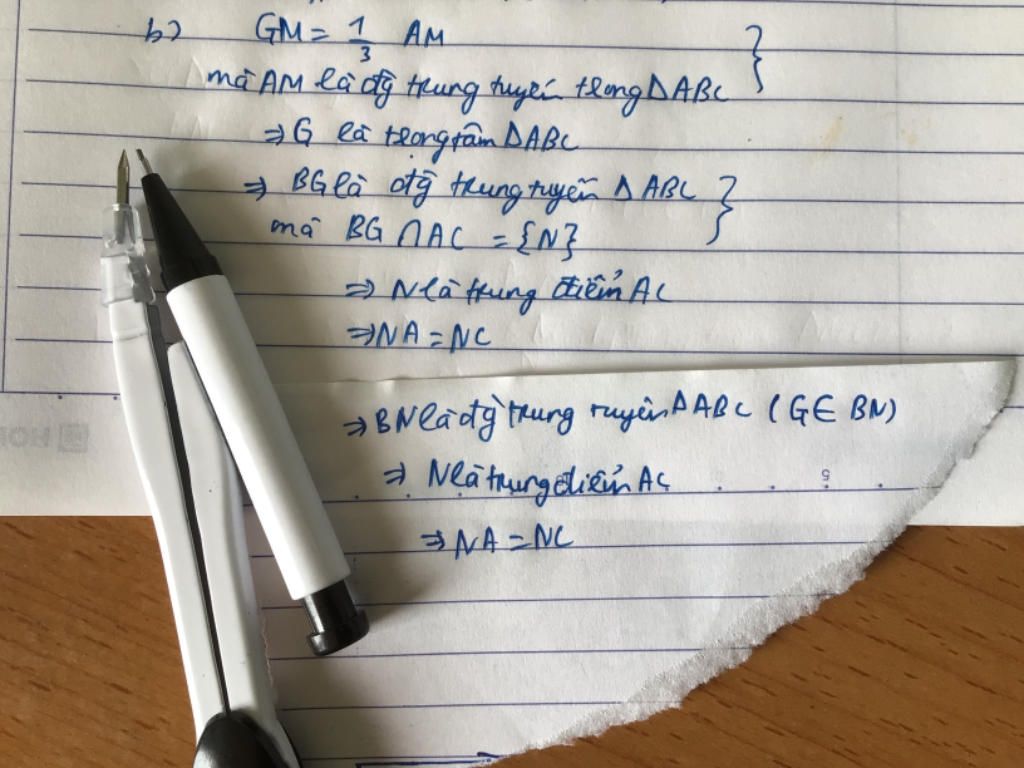 b) GM = 1/3 AM
mà AM là đg̀ trung tuyến trong ΔABC
⇒ G là trọng tâm ΔABC
⇒ BG là đg̀ trung tuyến ΔABC
mà BG ∩ AC = {N}
⇒ N là trung điểm AC
⇒ NA = NC
⇒ BN là đg̀ trung tuyến ΔABC (G ∈ BN)
5
⇒ N là trung điểm AC
⇒ NA = NC